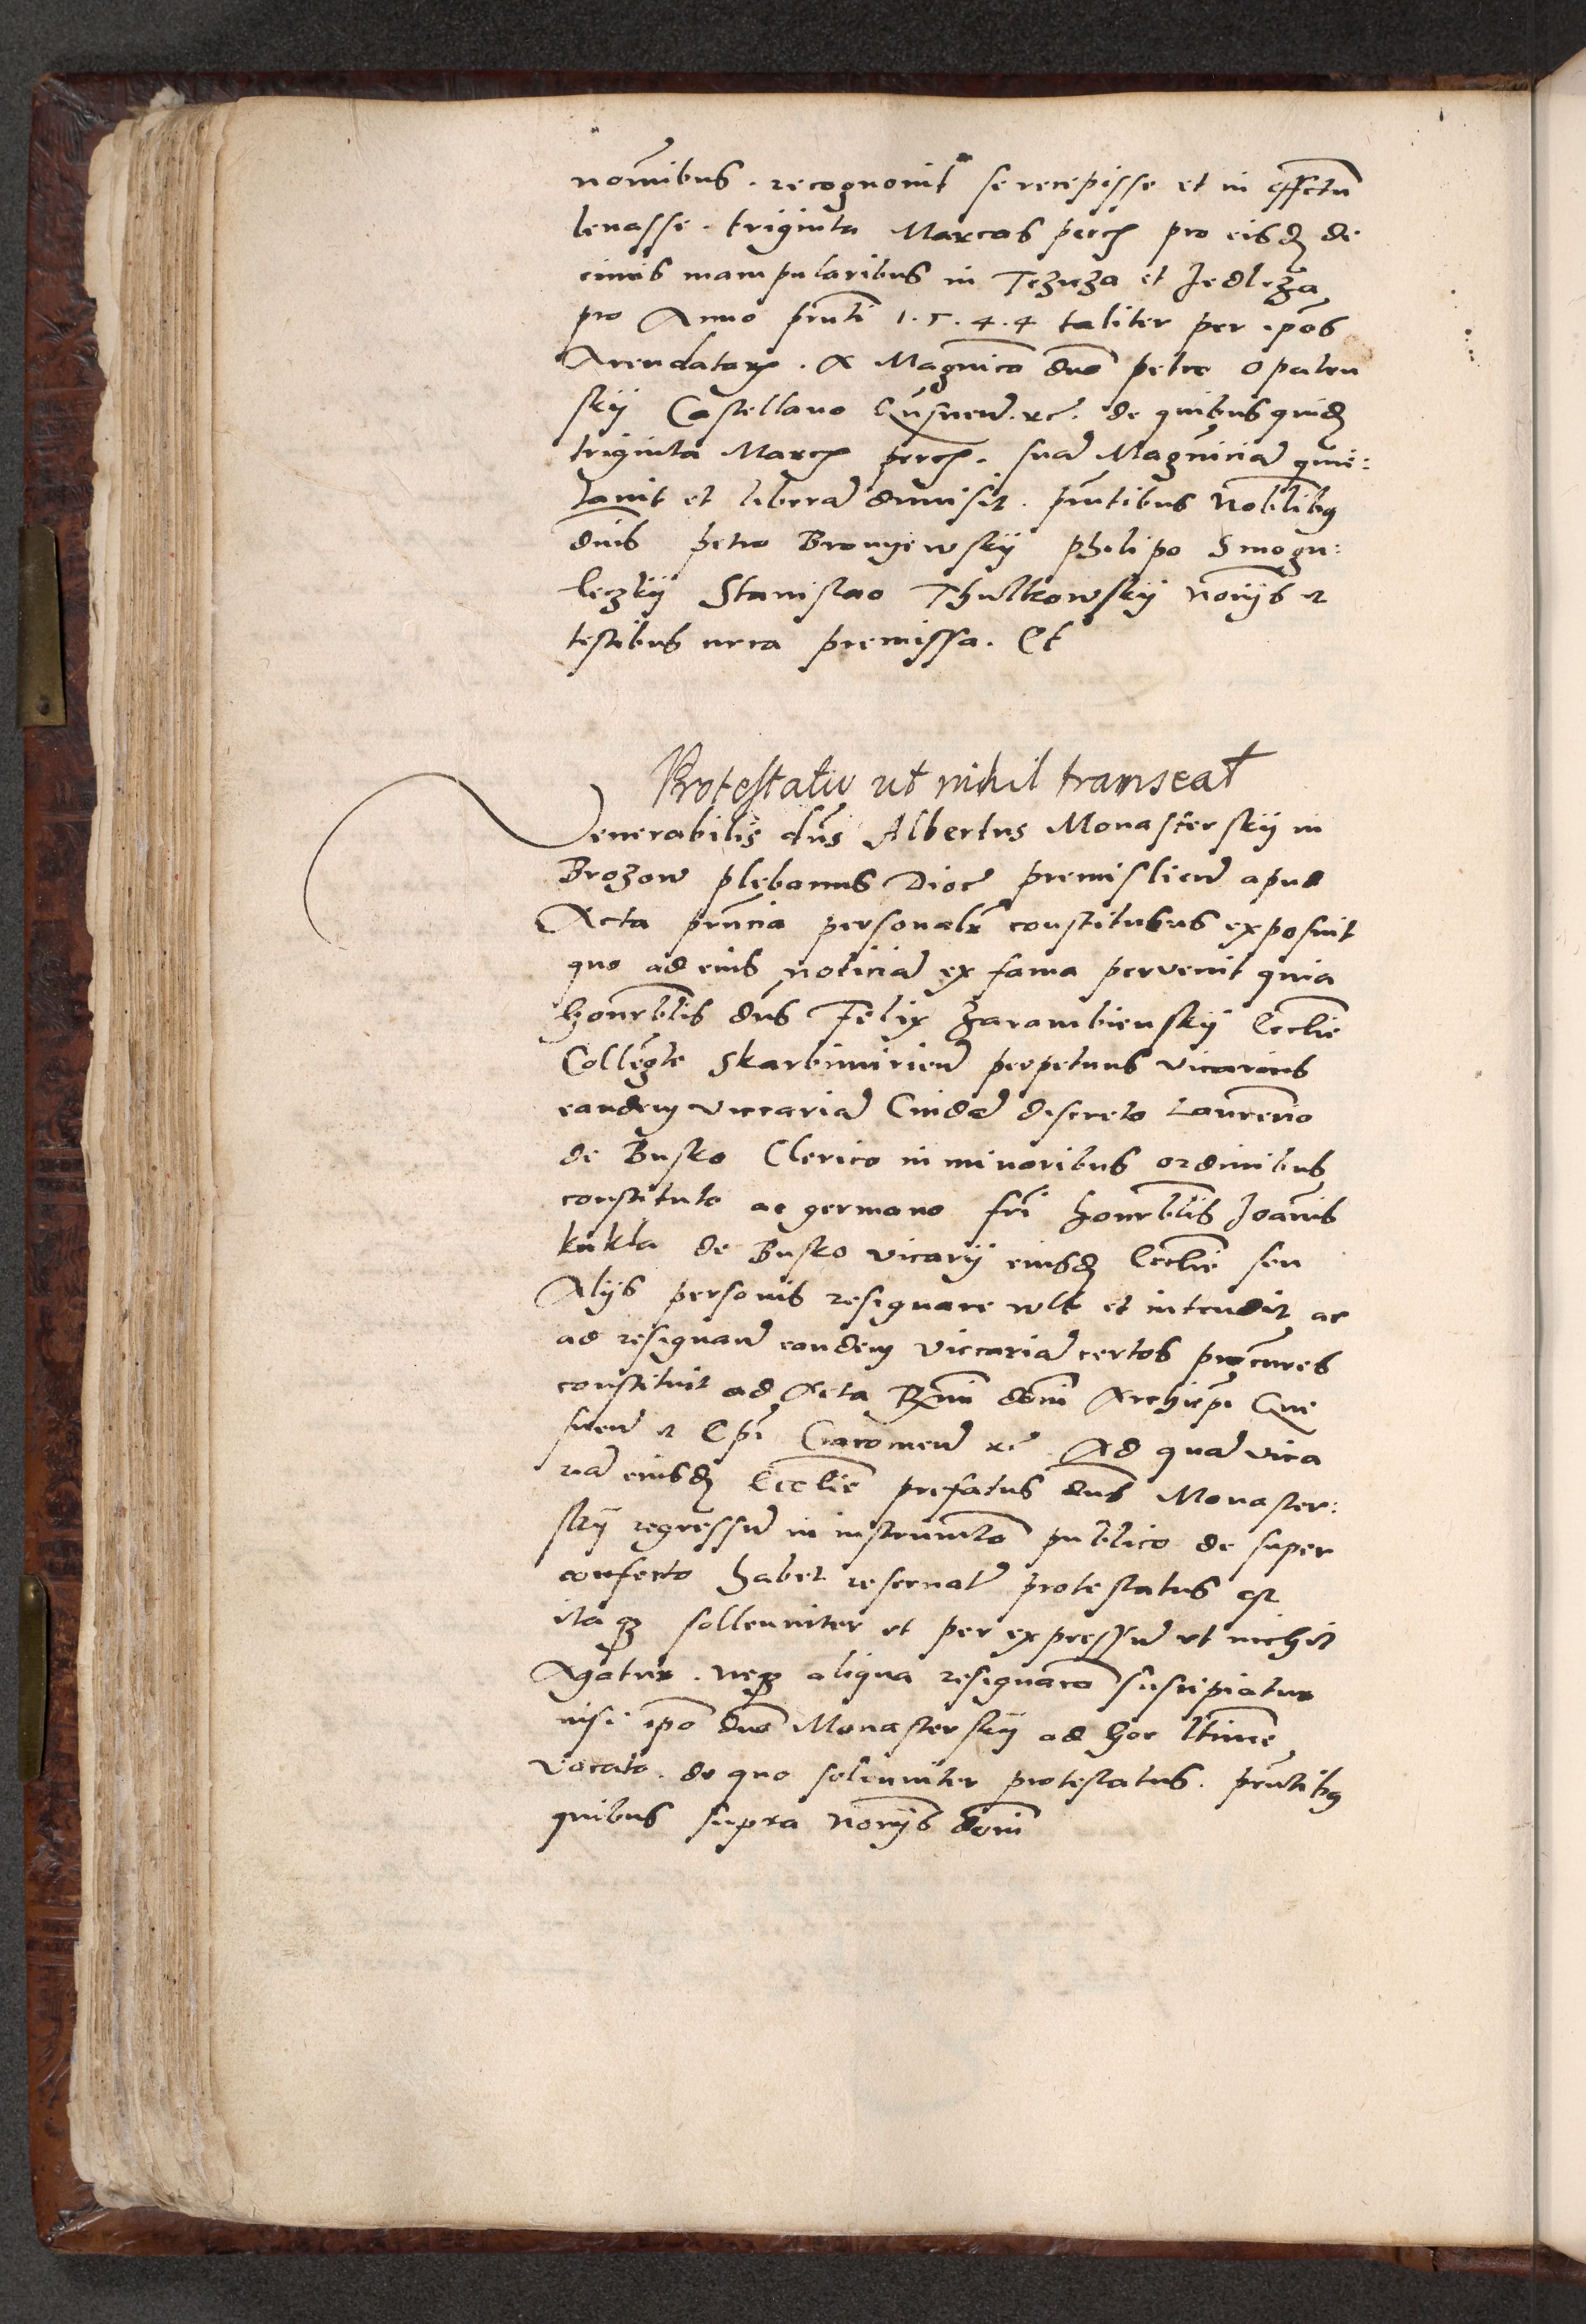 nom̄ibus . recognovit se recepisse et in effectū
levasse . triginta Marcas pec̄ pro eisd̄ de
cimis manipularibus in Tczicza et Jedlcza
pro Anno pn̄ti 1.5.4.4 taliter per ip̄os
Arendatar̄ . A Magnico dn̄o petro Opalen
skÿ Castellano Gn̄snen̄ . rc̄ . de quibus quid̄
triginta Marc̄ pec̄ . suā Magnīciā quie:
tavit et liberā dimisit . pn̄tibus Nob̄libꝫ
dn̄is petro Bronÿewskÿ philipo Smogu:
leczkÿ Stanislao Thulkowskÿ noŕijs et
testibus circa premissa . Et
Protestatio ut nihil transeat
Venerabilis dn̄s Albertus Monasterskÿ in
Brozow plebanus Dioc̄ premislien̄ apud
Acta pn̄cia personalr̄ constitutus exposuit
quo ad eius noticiā ex fama pervenit quia
honorb̄lis dn̄s Felix Zarambienskÿ Eccl̄ie
Colleḡte Skarbimirien̄ perpetuus vicarius
eandem viccariā Cuidā discreto Lauren̄o
de Busko Clerico in minoribus ordinibus
constituto ac germano fr̄i honorb̄lis Joān̄is
kukla de Busko vicarÿ eiusd̄ Eccl̄ie seu
Alÿs personis resignare vult et intendit ac
ad resignan̄ eandem viccariā certos procūres
constituit ad Acta Rn̄i doīni Archiep̄i Gne
snen̄ et Ep̄i Cracovien̄ rc̄ . Ad quā vica
riā eiusd̄ Eccl̄ie prefatus dn̄s Monaster:
skÿ regressū in instrumēto publico de super
confecto habet reservatū protestatus est
itaqꝫ sollenniter et per expressū ut nichil
Agatur . neqꝫ aliqua resignaco suscipiatur
nisi ip̄o dn̄o Monasterskÿ ad hoc lt̄ime
vocato . de quo solenniter protestatus . pn̄tibꝫ
quibus supra noŕijs doīni